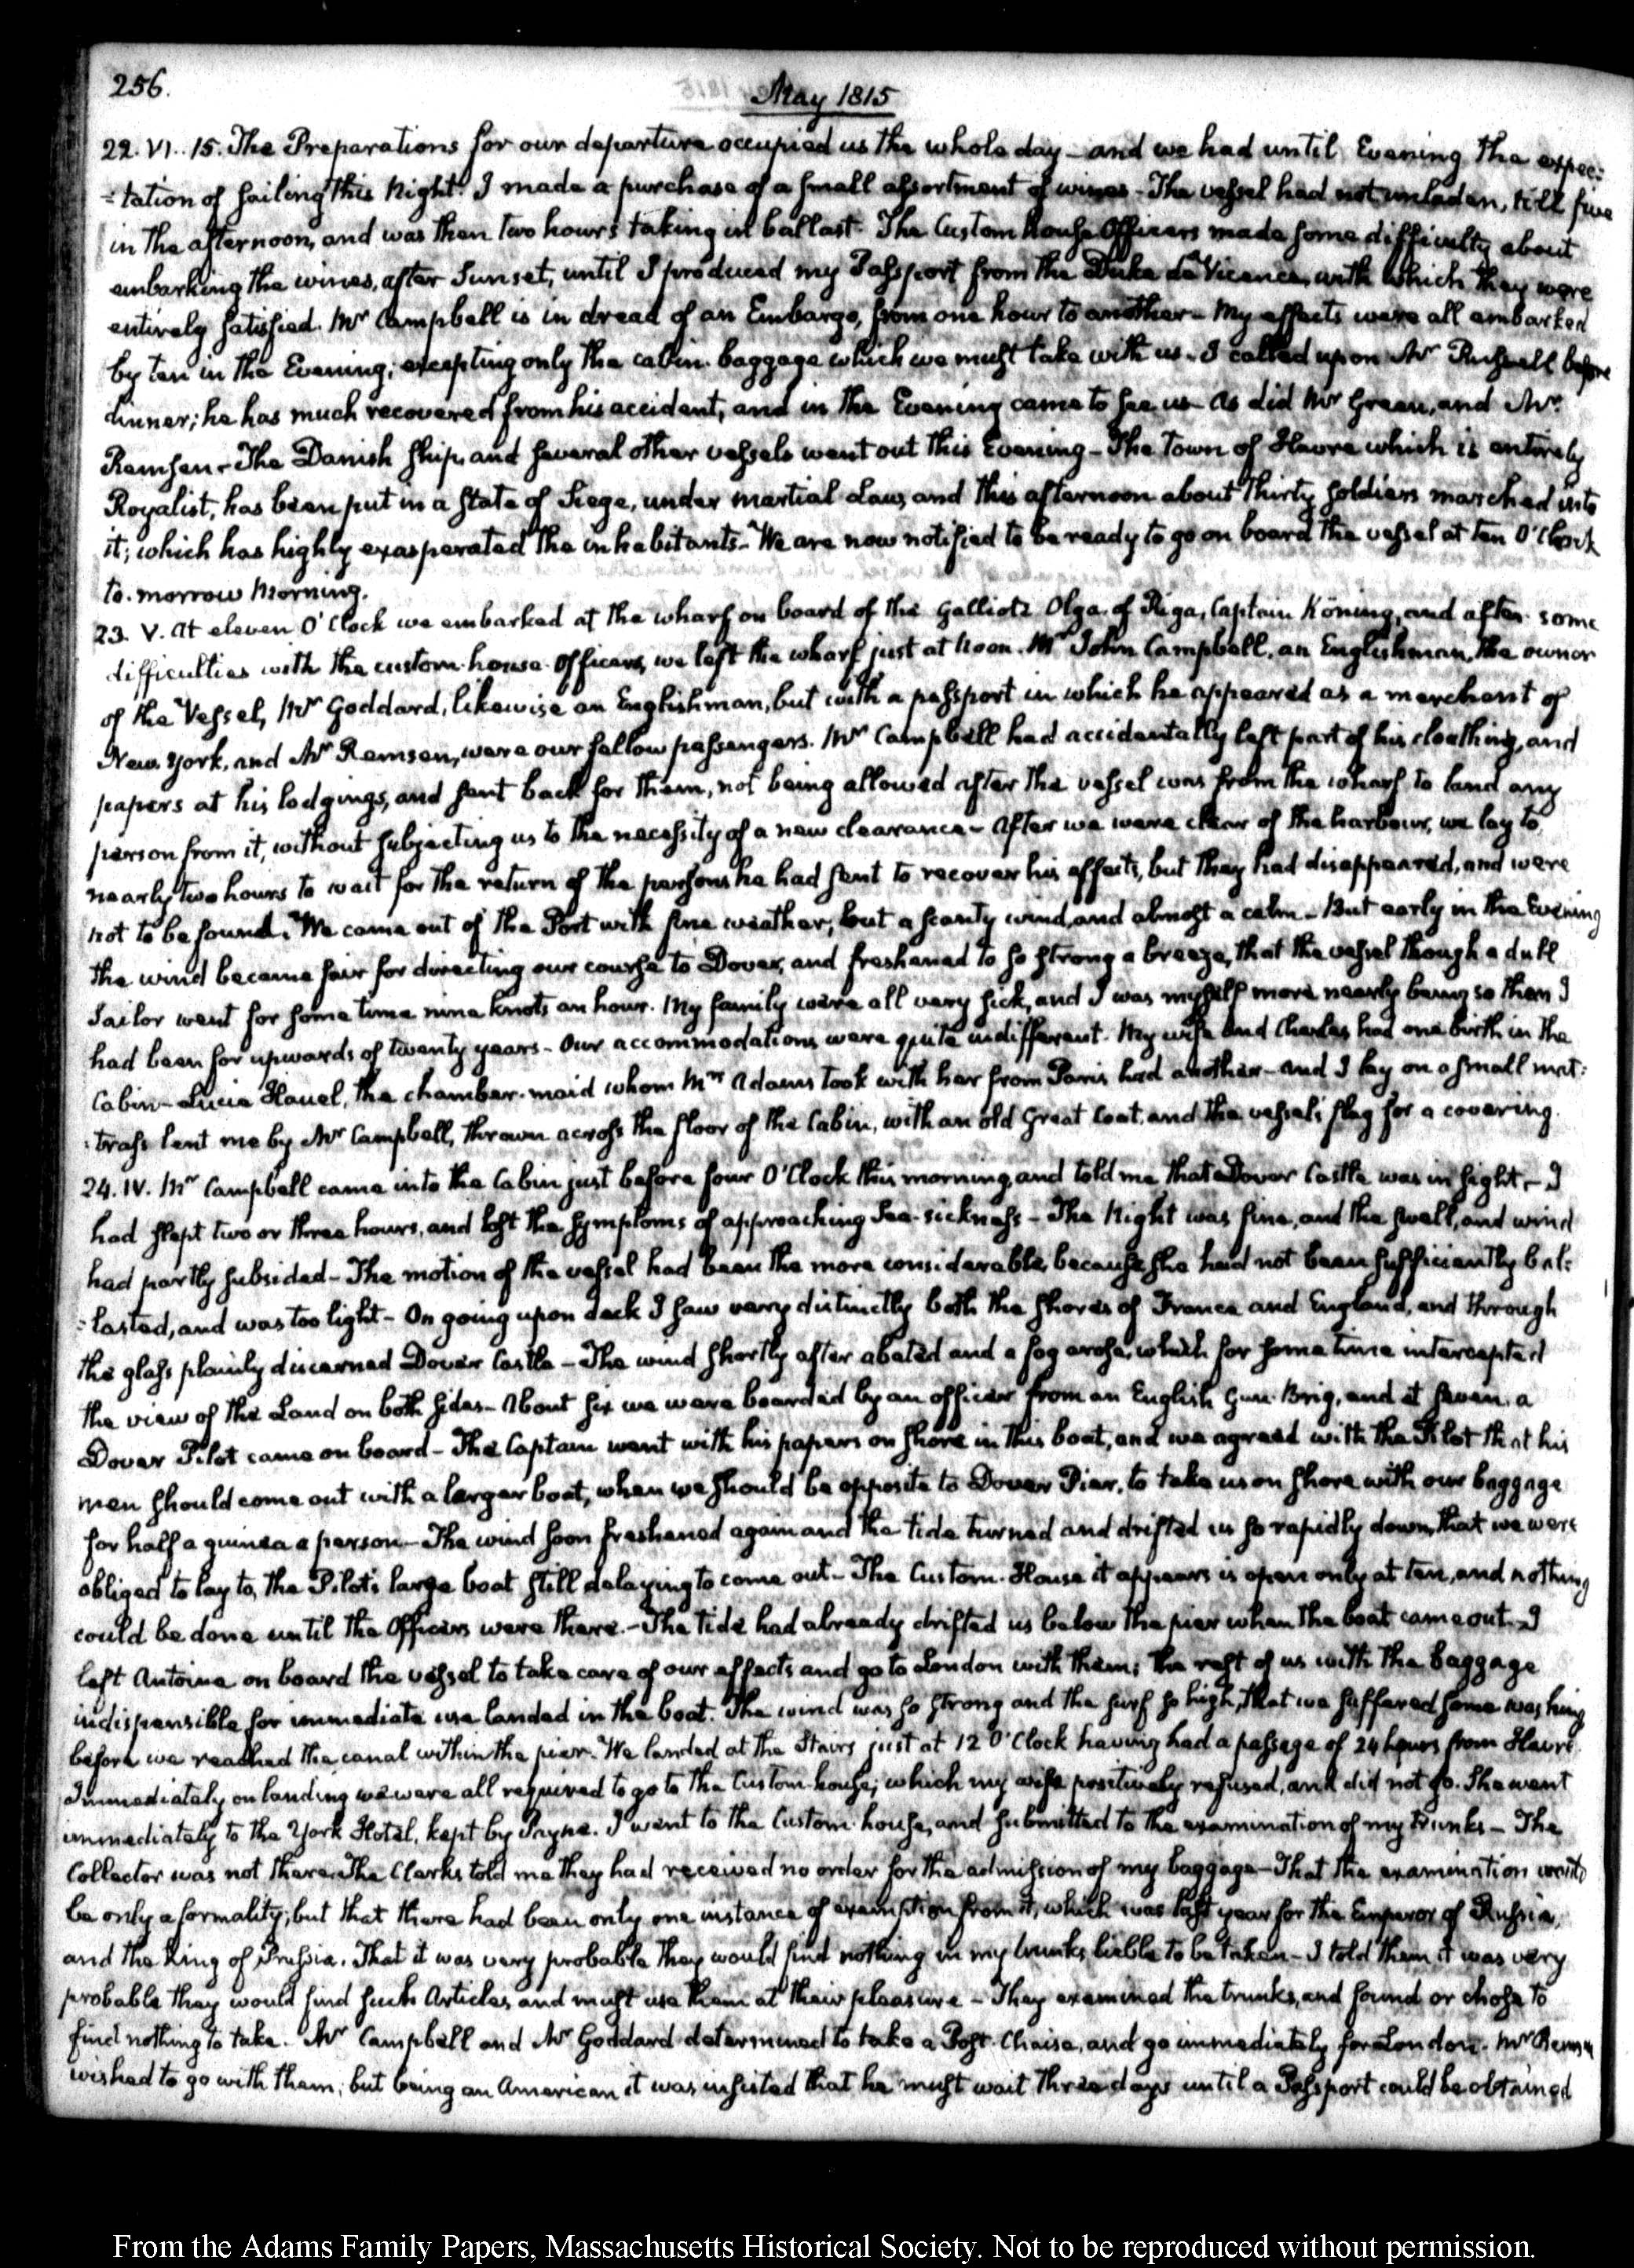 256.
May 1815
22. VI. 15. The Preparations for our departure occupied us the whole day – and we had until Evening the expec=
=tation of sailing this Night. I made a purchase of a small assortment of wines – The vessel had not unladen, till five
in the afternoon, and was then two hours taking in ballast. The Custom House Officers made some difficulty about
embarking the wines, after Sunset, until I produced my Passport from the Duke de Vicence, with which they were
entirely satisfied. Mr Campbell is in dread of an Embargo, from one hour to another – My effects were all embarked
by ten in the Evening; excepting only the cabin baggage which we must take with us. I called upon Mr Russell before
dinner; he has much recovered from his accident, and in the Evening came to see us – As did Mr Green, and Mr
Remsen – The Danish ship, and several other vessels went out this Evening – The Town of Havre which is entirely
Royalist, has been put in a state of Siege, under martial Law, and this afternoon about thirty soldiers marched into
it; which has highly exasperated the inhabitants – We are now notified to be ready to go on board the vessel at ten O'Clock
to-morrow Morning.
23. V. At eleven O'Clock we embarked at the wharf on board of the Galliot Olga of Riga, Captain Köning, and after some
difficulties with the custom-house Officers, we left the wharf just at Noon. Mr John Campbell, an Englishman, the owner
of the Vessel, Mr Goddard, likewise an Englishman, but with a passport in which he appeared as a merchant of
New York, and Mr Remsen, were our fellow passengers. Mr Campbell had accidentally left part of his cloathing, and
papers at his lodgings, and sent back for them, not being allowed after the vessel was from the wharf to land any
person from it, without subjecting us to the necessity of a new clearance – After we were clear of the harbour, we lay to
nearly two hours to wait for the return of the persons he had sent to recover his effects, but they had disappeared, and were
not to be found. We came out of the Port with fine weather, but a scanty wind, and almost a calm – But early in the Evening
the wind became fair for directing our course to Dover, and freshened to so strong a breeze, that the vessel though a dull
sailor went for some time nine knots an hour. My family were all very sick, and I was myself more nearly being so than I
had been for upwards of twenty years – Our accommodations were quite indifferent. My wife and Charles had one birth in the
Cabin – Lucie Hauel, the chamber-maid whom Mrs Adams took with her from Paris had another – and I lay on a small mat:
:trass lent me by Mr Campbell, thrown across the floor of the Cabin, with an old Great Coat, and the vessel's flag for a covering.
24. IV. Mr Campbell came into the Cabin just before four O'Clock this morning, and told me that Dover Castle was in sight – I
had slept two or three hours, and lost the symptoms of approaching Sea-sickness – The Night was fine, and the swell, and wind
had partly subsided – The motion of the vessel had been the more considerable, because she had not been sufficiently bal:
:lasted, and was too light – On going upon deck I saw very distinctly both the shores of France and England, and through
the glass plainly discerned Dover Castle – The wind shortly after abated and a fog arose, which for some time intercepted
the view of the Land on both sides – About six we were boarded by an officer from an English Gun-Brig, and at seven, a
Dover Pilot came on board – The Captain went with his papers on shore in this boat, and we agreed with the Pilot that his
men should come out with a larger boat, when we should be opposite to Dover Pier, to take us on shore with our baggage
for half a guinea a person – The wind soon freshened again and the tide turned and drifted us so rapidly down, that we were
obliged to lay to, the Pilot's large boat still delaying to come out – The Custom-House it appears is open only at ten, and nothing
could be done until the Officers were there. – The tide had already drifted us below the pier when the boat came out. I
left Antoine on board the vessel to take care of our effects and go to London with them; the rest of us with the baggage
indispensible for immediate use landed in the boat. The wind was so strong and the surf so high, that we suffered some washing
before we reached the canal within the pier. We landed at the Stairs just at 12 O'Clock having had a passage of 24 hours from Havre.
Immediately on landing we were all required to go to the Custom-house; which my wife positively refused, and did not go. She went
immediately to the York Hotel, kept by Payne. I went to the Custom-house, and submitted to the examination of my trunks – The
Collector was not there. The Clerks told me they had received no order for the admission of my baggage – That the examination would
be only a formality; but that there had been only one instance of exemption from it, which was last year for the Emperor of Russia,
and the King of Prussia. That it was very probable they would find nothing in my trunks liable to be taken – I told them it was very
probable they would find such Articles, and must use them at their pleasure – They examined the trunks, and found or chose to
find nothing to take. Mr Campbell and Mr Goddard determined to take a Post-Chaise, and go immediately for London. Mr Remsen
wished to go with them; but being an American it was insisted that he must wait three days until a Passport could be obtained
From the Adams Family Papers, Massachusetts Historical Society. Not to be reproduced without permission.